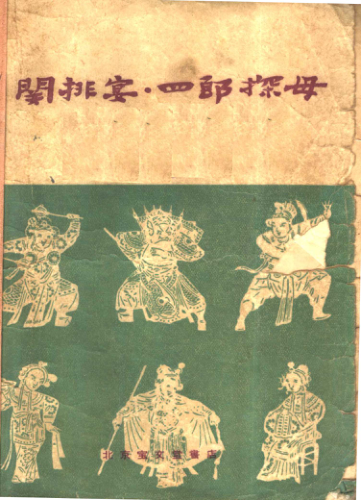 闖排宴·四郎探母
北京宝文堂書店